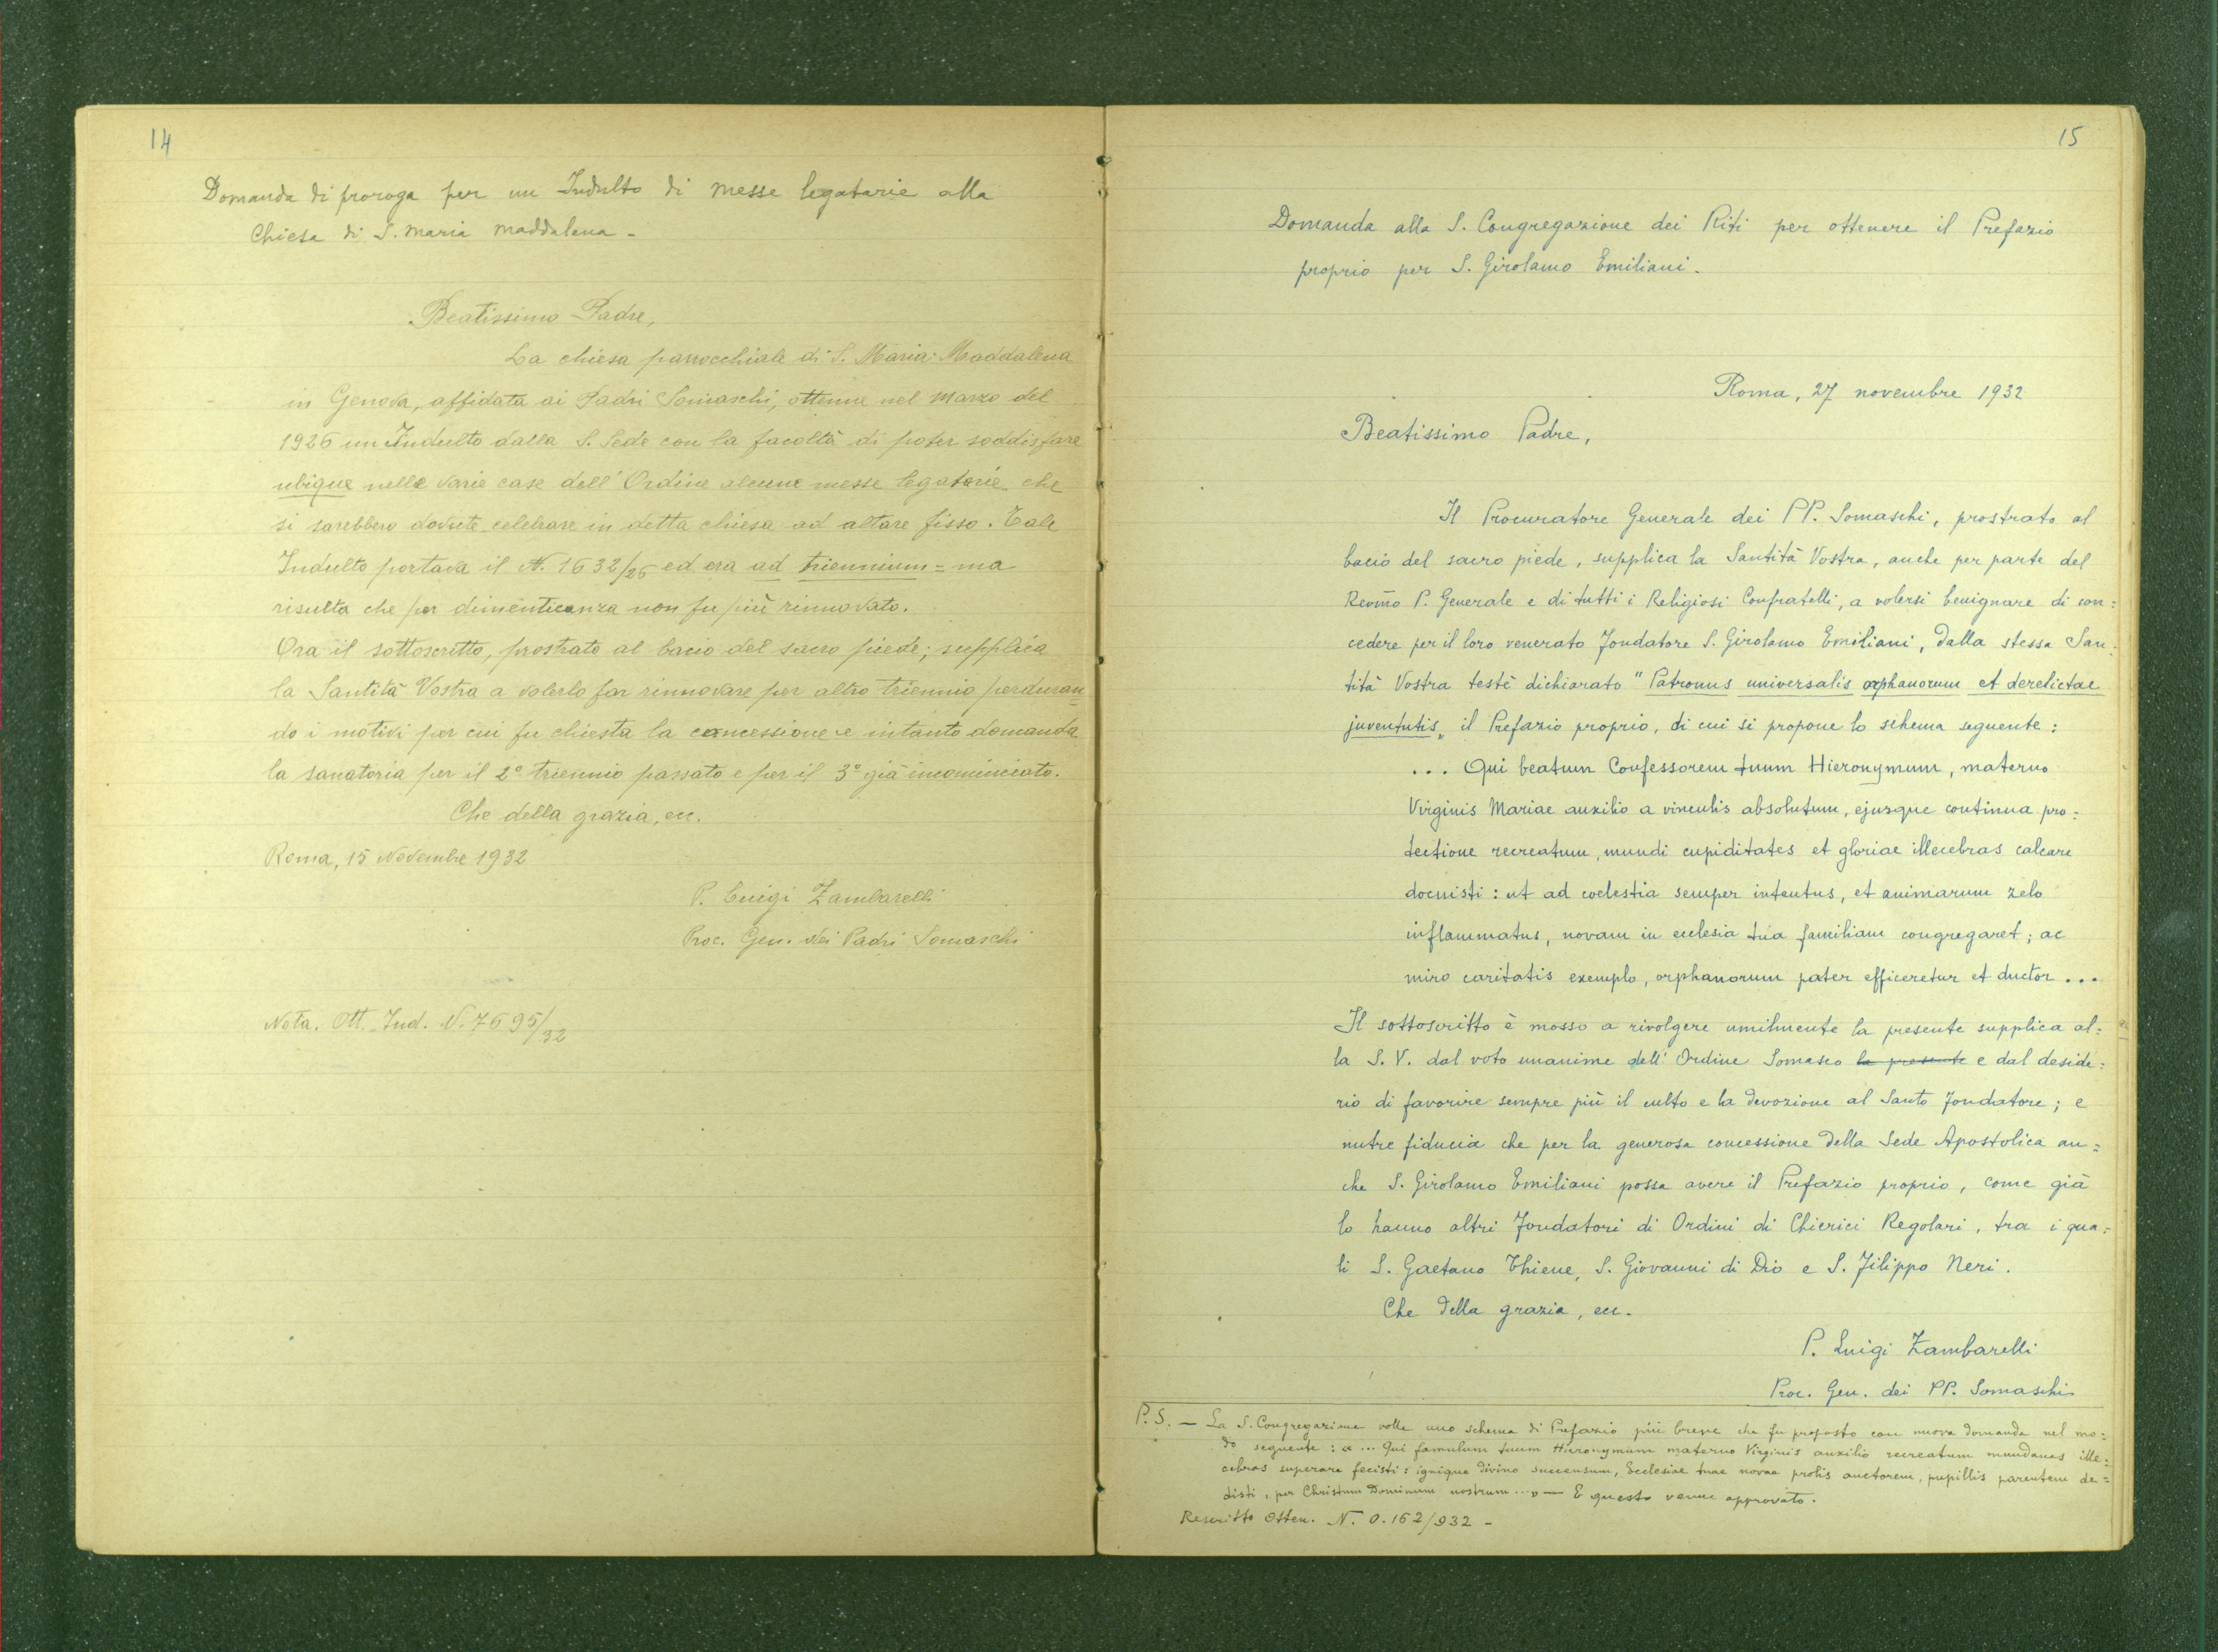 14
Domanda di proroga per un Indulto di messe legatarie alla
Chiesa di S. Maria Maddalena -
Beatissimo Padre,
La chiesa parrocchiale di S. Maria Maddalena
in Genova, affidata ai Padri Somaschi, ottenne nel Marzo del
1926 un Indulto dalla S. Sede con la facoltà di poter soddisfare
ubique nelle varie case dell'Ordine alcune messe legatarie che
si sarebbero dovute celebrare in detta chiesa ad altare fisso. Tale
Indulto portava il N. 1632/26 ed era ad triennium = ma
risulta che per dimenticanza non fu più rinnovato.
Ora il sottoscritto, prostrato al bacio del sacro piede, supplica
la Santità Vostra a volerlo far rinnovare per altro triennio perduran=
do i motivi per cui fu chiesta la concessione e intanto domanda
la sanatoria per il 2° triennio passato e per il 3° già incominciato.
Che della grazia, ecc.
Roma, 15 Novembre 1932
P. Luigi Zambarelli
Proc. Gen. dei Padri Somaschi
Nota. Ott. Ind. N. 7695/32
15
Domanda alla S. Congregazione dei Riti per ottenere il Prefazio
proprio per S. Girolamo Emiliani.
Roma, 27 novembre 1932
Beatissimo Padre,
Il Procuratore Generale dei PP. Somaschi, prostrato al
bacio del sacro piede, supplica la Santità Vostra, anche per parte del
Revm̃o P. Generale e di tutti i Religiosi Confratelli, a volersi benignare di con=
cedere per il loro venerato Fondatore S. Girolamo Emiliani, dalla stessa San=
tità Vostra testè dichiarato "Patronus universalis orphanorum et derelictae
juventutis" il Prefazio proprio, di cui si propone lo schema seguente:
... Qui beatum Confessorem tuum Hieronymum, materno
Virginis Mariae auxilio a vinculis absolutum, ejusque continua pro=
tectione recreatum, mundi cupiditates et gloriae illecebras calcare
docuisti: ut ad coelestia semper intentus, et animarum zelo
inflammatus, novam in ecclesia tua familiam congregaret; ac
miro caritatis exemplo, orphanorum pater efficeretur et ductor...
Il sottoscritto è mosso a rivolgere umilmente la presente supplica al=
la S. V. dal voto unanime dell'Ordine Somasco la presente e dal deside=
rio di favorire sempre più il culto e la devozione al Santo Fondatore; e
nutre fiducia che per la generosa concessione della Sede Apostolica an=
che S. Girolamo Emiliani possa avere il Prefazio proprio, come già
lo hanno altri Fondatori di Ordini di Chierici Regolari, tra i qua=
li S. Gaetano Thiene, S. Giovanni di Dio e S. Filippo Neri.
Che della grazia, ecc.
P. Luigi Zambarelli
Proc. Gen. dei PP. Somaschi
P.S. — La S. Congregazione volle uno schema di Prefazio più breve che fu proposto con nuova domanda nel mo=
do seguente: «... Qui famulum tuum Hieronymum materno Virginis auxilio recreatum mundanas ille=
cebras superare fecisti: ignique divino succensum, Ecclesiae tuae novae prolis auctorem, pupillis parentem de=
disti, per Christum Dominum nostrum...» — E questo venne approvato.
Rescritto Otten. N. O. 162/932 -